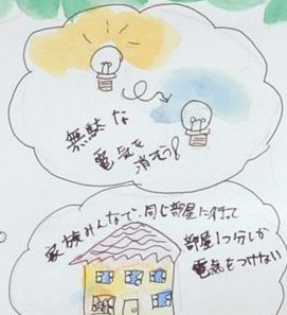 無駄な
電気を
消そう!
家族みんなで、同じ部屋に行って
部屋1つ分しか
電気をつけない